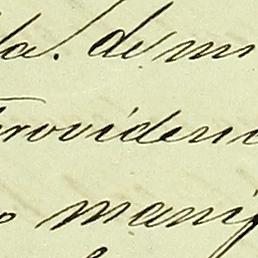 da. de mi
Providenci
manif